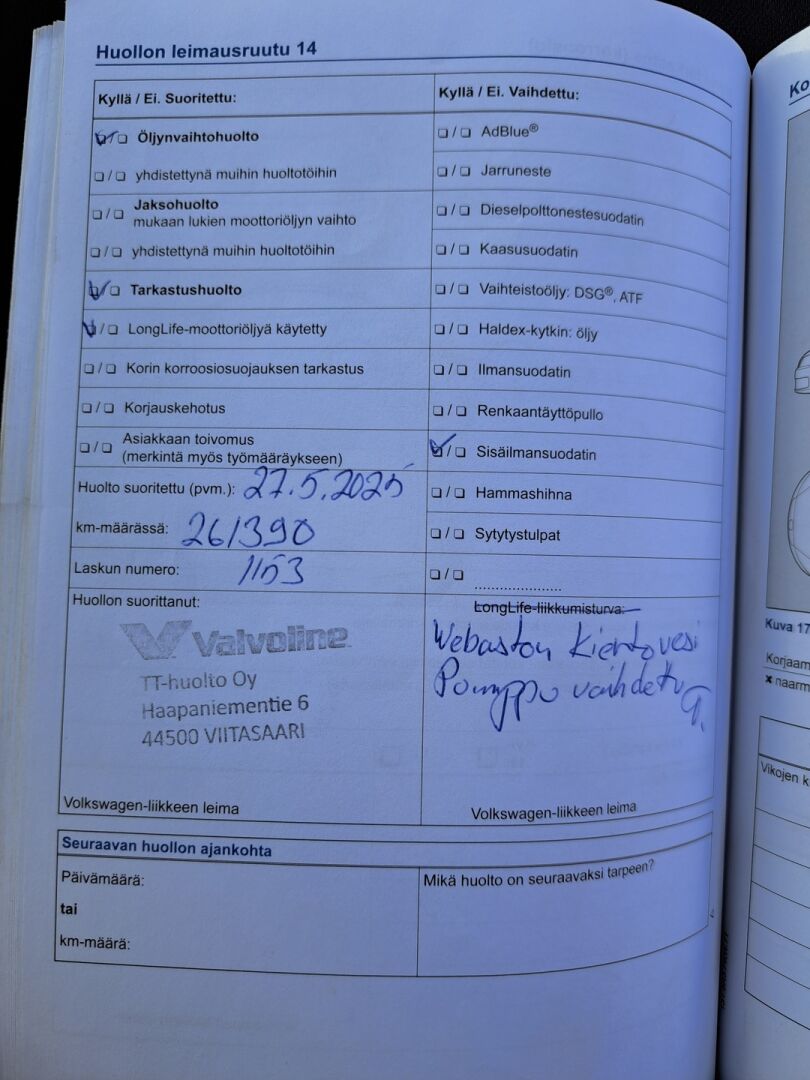 Huollon leimausruutu 14
Kyllä / Ei. Suoritettu:
Öljynvaihtohuolto
yhdistettynä muihin huoltotöihin
Jaksohuolto
mukaan lukien moottoriöljyn vaihto
yhdistettynä muihin huoltotöihin
Tarkastushuolto
LongLife-moottoriöljyä käytetty
Korin korroosiosuojauksen tarkastus
Korjauskehotus
Asiakkaan toivomus
(merkintä myös työmääräykseen)
Huolto suoritettu (pvm.): 27.5.2025
km-määrässä: 261390
Laskun numero: 1153
Huollon suorittanut:
Valvoline
TT-huolto Oy
Haapaniementie 6
44500 VIITASAARI
Volkswagen-liikkeen leima
Kyllä / Ei. Vaihdettu:
AdBlue®
Jarruneste
Dieselpolttonestesuodatin
Kaasusuodatin
Vaihteistoöljy: DSG®, ATF
Haldex-kytkin: öljy
Ilmansuodatin
Renkaantäyttöpullo
Sisäilmansuodatin
Hammashihna
Sytytystulpat
LongLife-liikkumisturva:
Webaston kiertovesi
Pomppu vaihdettu
Volkswagen-liikkeen leima
Seuraavan huollon ajankohta
Päivämäärä:
tai
km-määrä:
Mikä huolto on seuraavaksi tarpeen?
Ko
Kuva 17
Korjaam
x naarm
Vikojen k